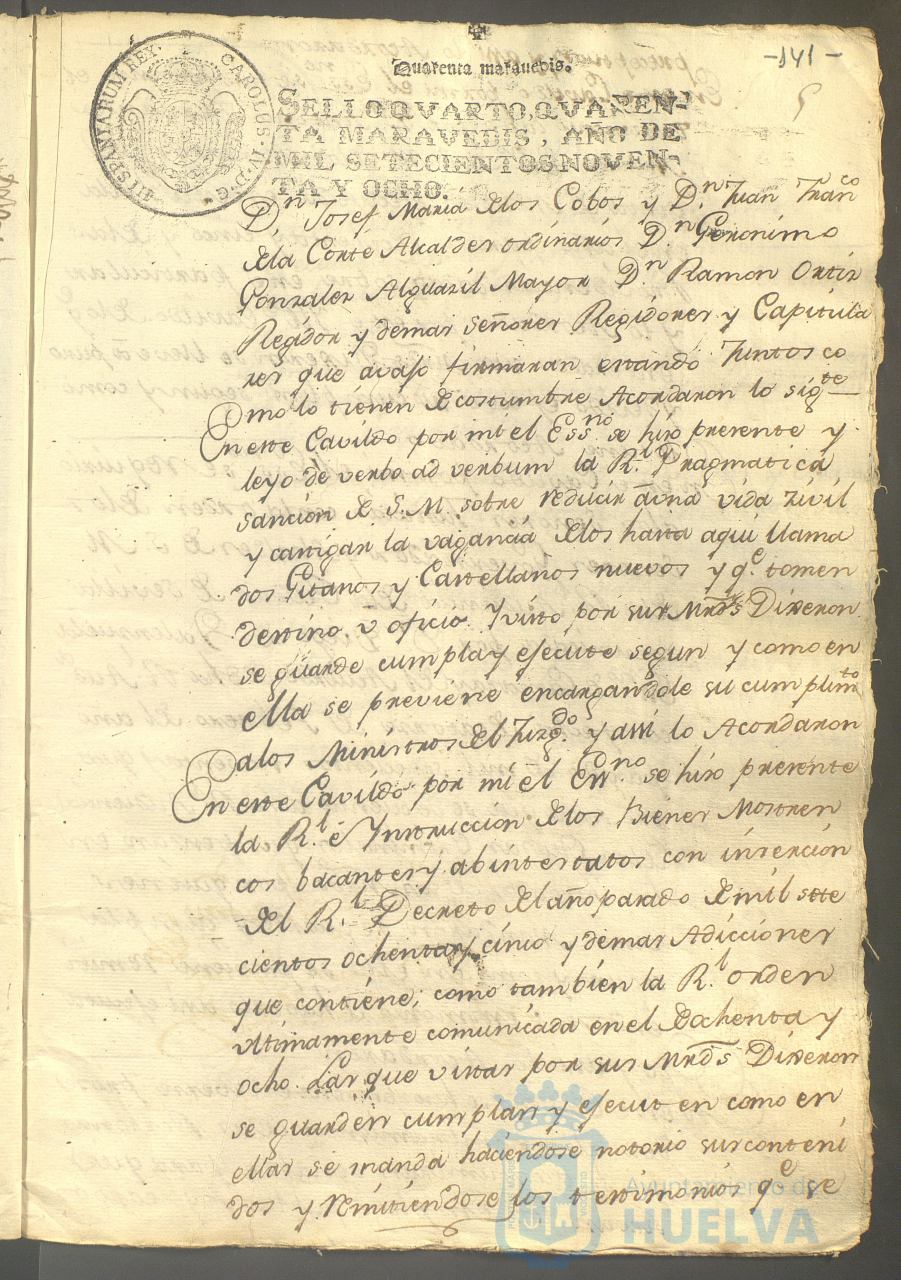 -141-
5
Quarenta marauedis.
HISPANIARUM REX. CAROLUS IV D G
SELLO QVARTO, QVAREN-
TA MARAVEDIS, AÑO DE
MIL SETECIENTOS NOVEN-
TA Y OCHO.
Dn Josef Maria delos Cobos y Dn Juan Franco
dela Corte Alcaldes ordinarios Dn Geronimo
Gonzales Alguazil Mayor Dn Ramon Ortiz
Regidor y demas señores Regidores y Capitula
res que avajo firmaran estando Juntos co
mo lo tienen de costumbre Acordaron lo sigte
En este Cavildo por mi el Essno se hizo presente y
leyo de verbo ad verbum la Rl Pragmatica
sanción de S. M. sobre reducir á una vida zivil
y castigar la vagancia delos hasta aqui llama
dos Gitanos y Castellanos nuevos y qe tomen
destino, u oficio. Y visto por sus Mrds Dixeron
se guarde cumpla y ejecute segun y como en
ella se previene encargandole su cumplimto
alos Ministros del Juzgdo y assi lo Acordaron
En este Cavildo por mi el Essno se hizo presente
la Rl é Ynstruccion delos Bienes Mostren
cos bacantes y abintestatos con inserción
del Rl Decreto del año pasado de mil sete
cientos ochenta y cinco y demas Adicciones
que contiene, como también la Rl orden
ultimamente comunicada en el de ochenta y
ocho. Las que vistas por sus Mrds Dixeron
se guarden cumplan y ejecuten como en
ellas se manda haciendose notorio sus conteni
dos y Remitiendose los testimonios qe se
Ayuntamiento de
HUELVA